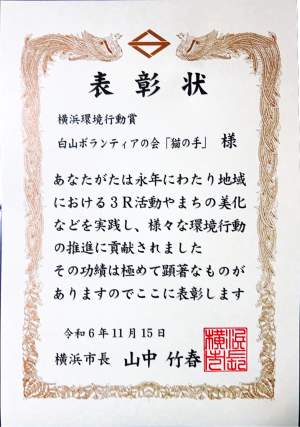 表彰状
横浜環境行動賞
白山ボランティアの会「猫の手」 様
あなたがたは永年にわたり地域
における３Ｒ活動やまちの美化
などを実践し、様々な環境行動
の推進に貢献されました
その功績は極めて顕著なものが
ありますのでここに表彰します
令和６年１１月１５日
横浜市長 山中 竹春